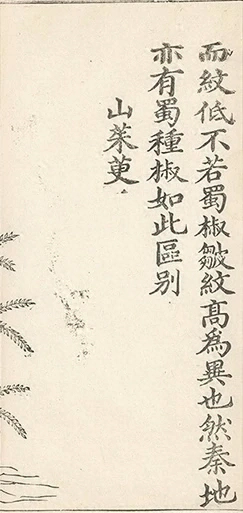 而紋低不若蜀椒皺紋髙為異也然秦地
亦有蜀種椒如此區别
山茱萸